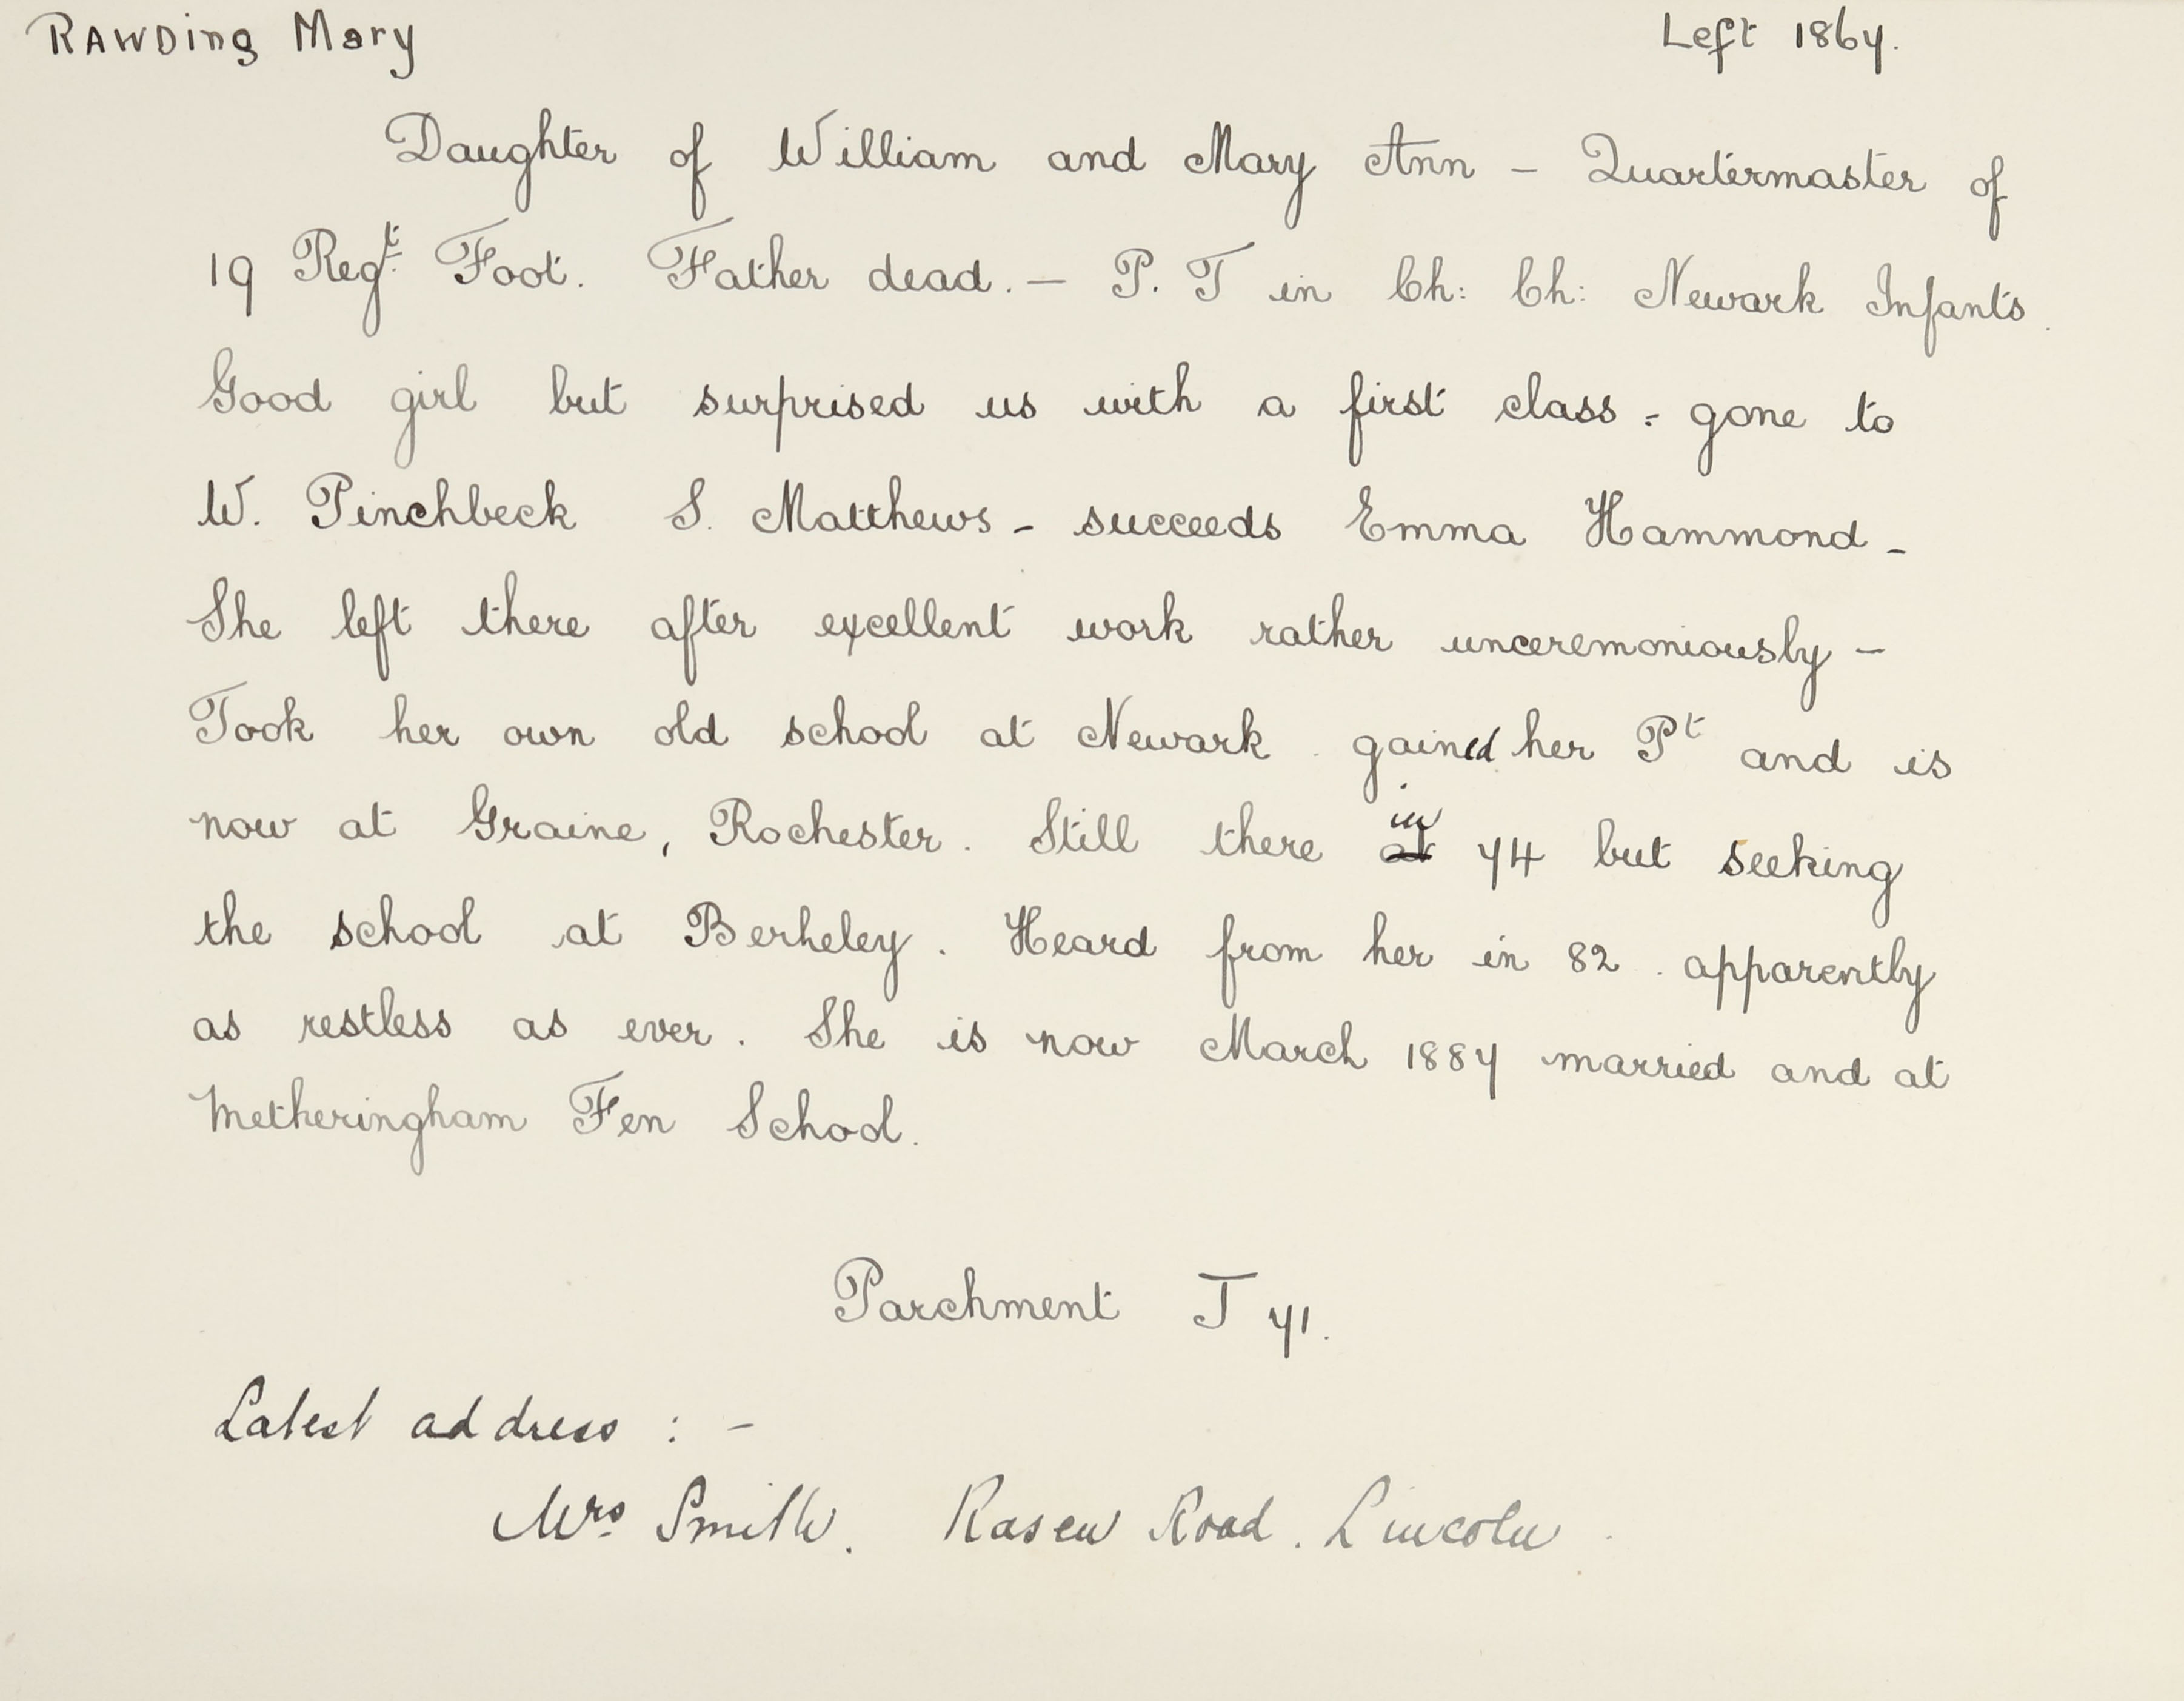 RAWDing Mary Left 1867.
Daughter of William and Mary Ann – Quartermaster of
19 Regt. Foot. Father dead. – P. T in Ch: Ch: Newark Infants.
Good girl but surprised us with a first class - gone to
W. Pinchbeck S. Matthews - succeeds Emma Hammond -
She left there after excellent work rather unceremoniously –
Took her own old school at Newark. gained her Pt and is
now at Graine, Rochester. Still there in 74 but seeking
the school at Berkeley. Heard from her in 82. apparently
as restless as ever. She is now March 1887 married and at
Metheringham Fen School.
Parchment J 71.
Latest address : -
Mrs Smith. Rasen Road. Lincoln.